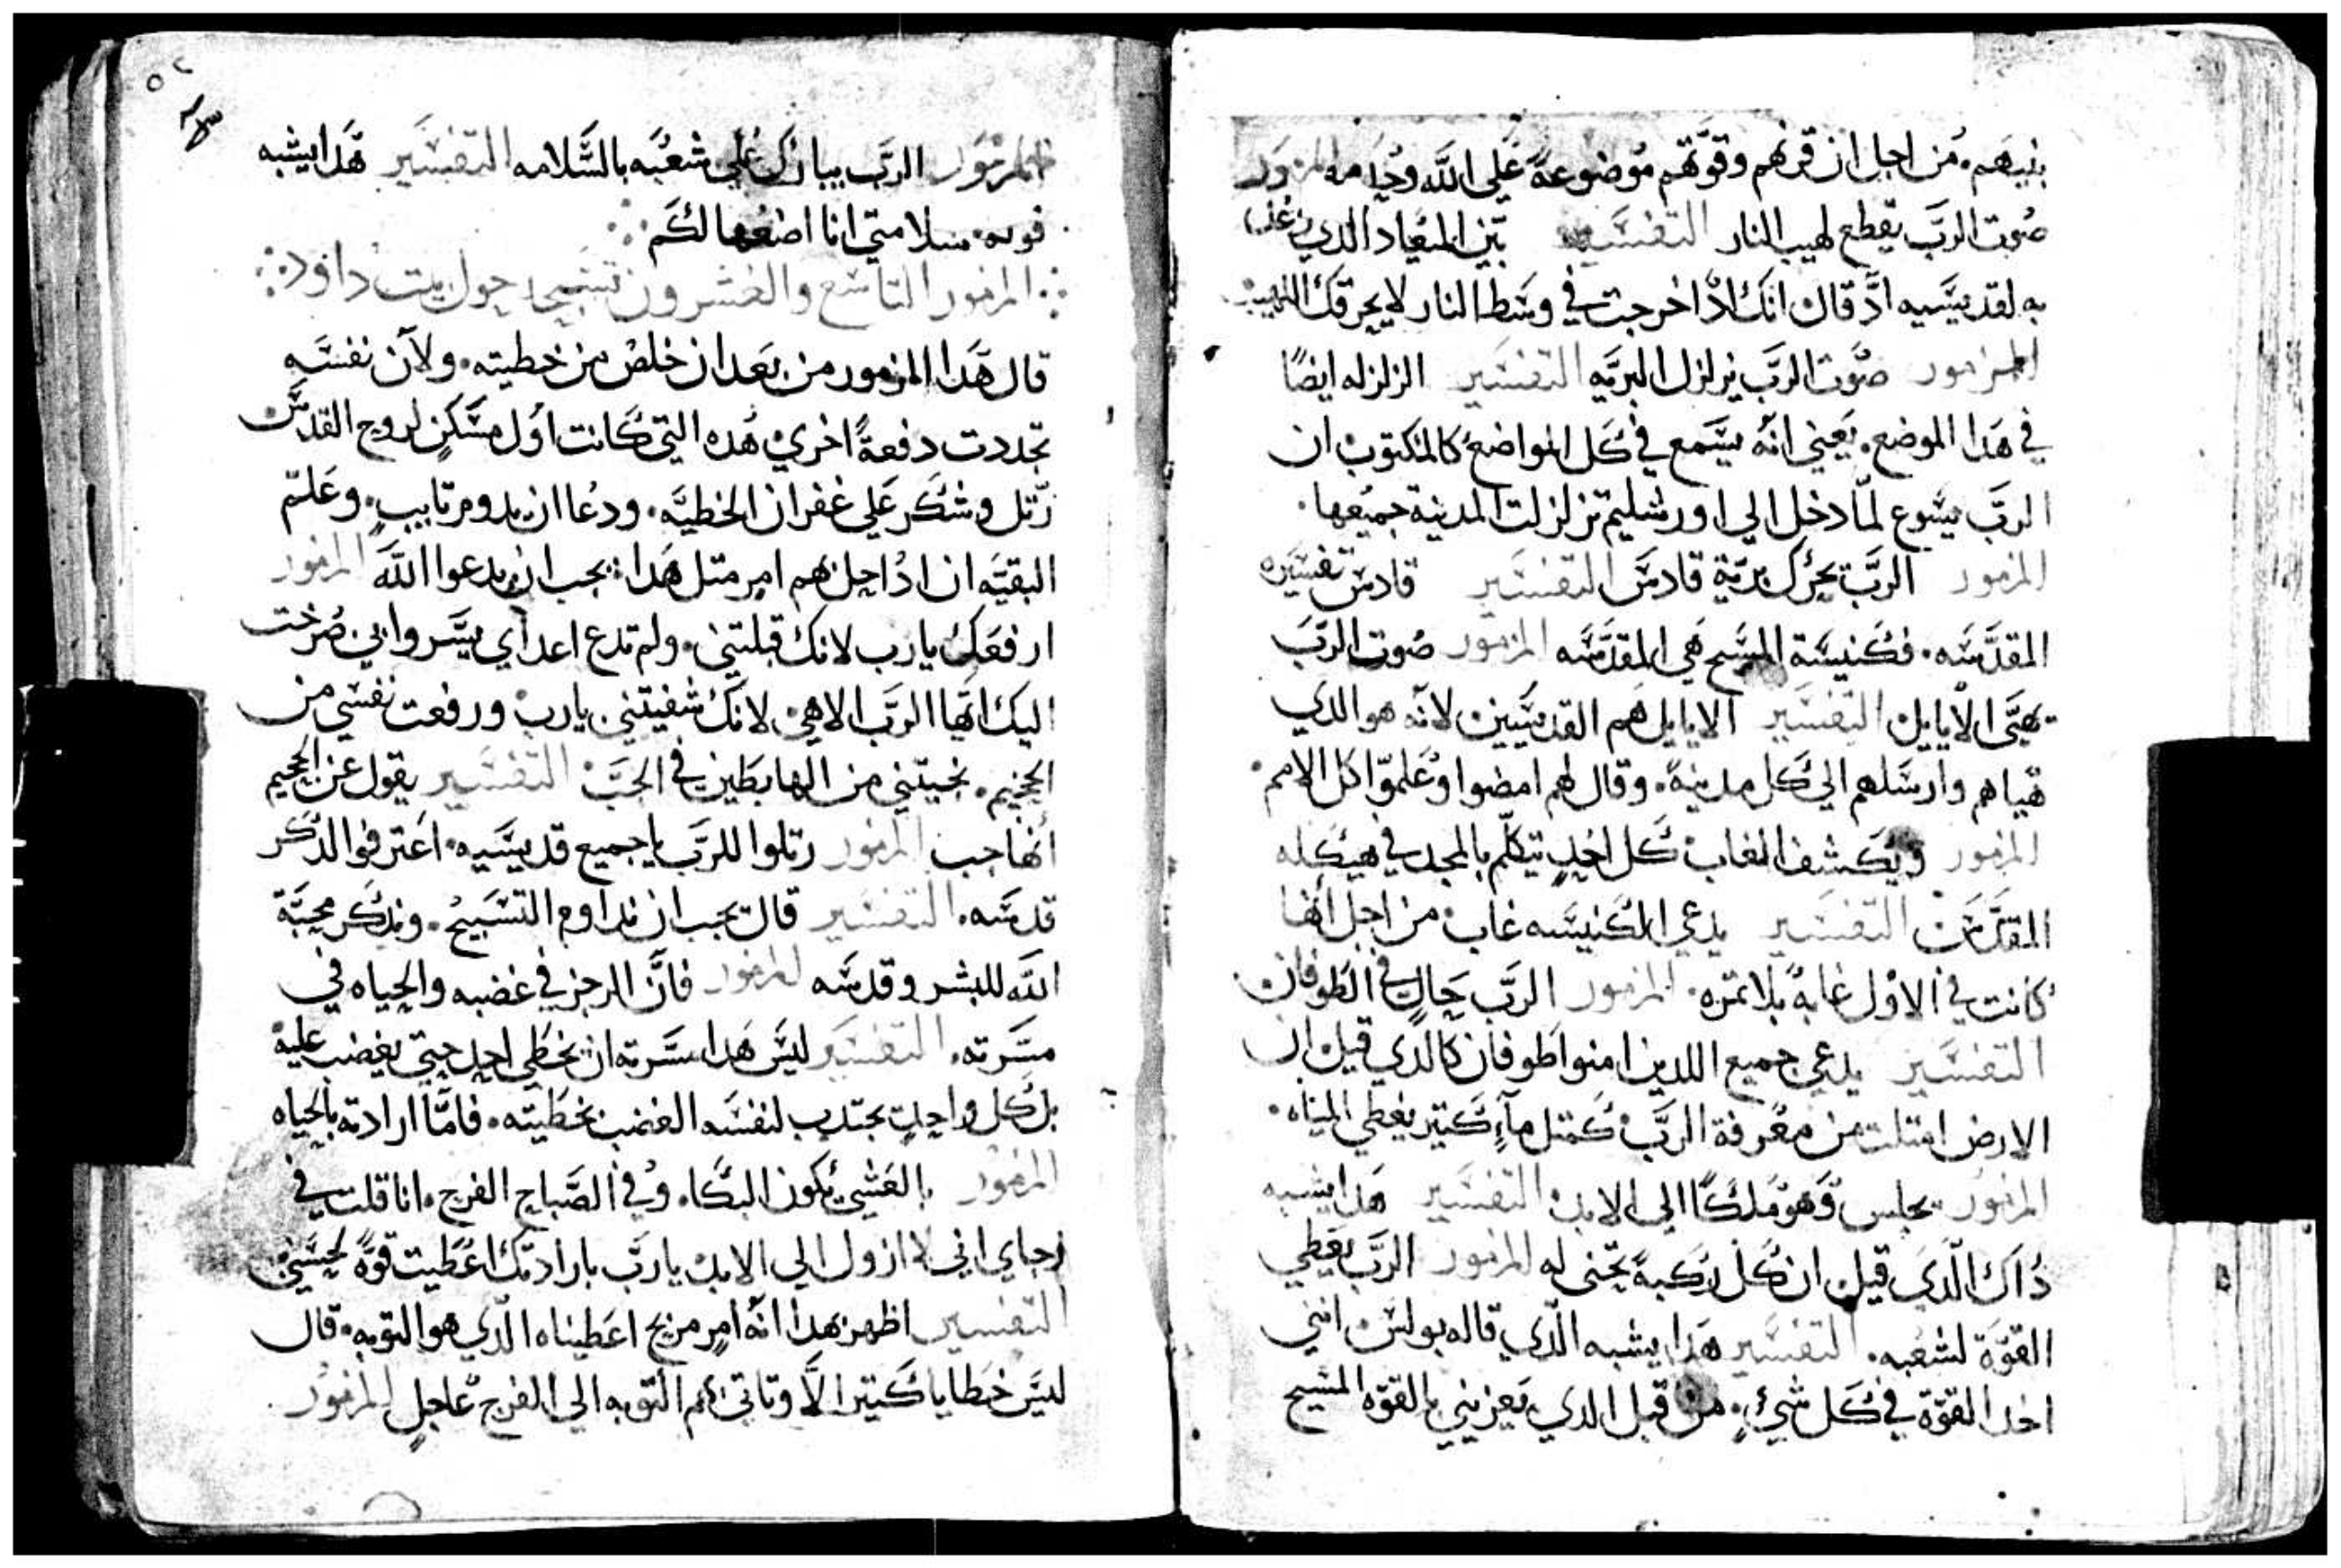 بنيهم. من اجل ان قرنهم وقوتهم موضوعة علي الله وحده المزمور
صوت الرب يقطع لهيب النار التفسير بين الميعاد الدي
به لقديسيه اد قال انك ادا خرجت في وسط النار لا يحرقك اللهيب
المزمور صوت الرب يزلزل البريه التفسير الزلزله ايضا
في هدا الموضع. يعني انه يسمع في كل المواضع كالمكتوب ان
الرب يسوع لما دخل الي اورشليم تزلزلت المدينة جميعها.
المزمور الرب يحرك برية قادس التفسير قادس تفسيره
المقدسه. فكنيسة المسيح هي المقدسه المزمور صوت الرب
يهيي الايايل التفسير الايايل هم القديسين لانه هو الدي
هياهم وارسلهم الي كل مدينة. وقال لهم امضوا وعلموا كل الامم.
المزمور ويكشف الغاب كل احد يتكلم بالمجد في هيكله
المقدس التفسير يدعي الكنيسه غاب من اجل انها
كانت في الاول غابة بلا تمره. المزمور الرب حال في الطوفان.
التفسير يدعي جميع اللدين امنوا طوفان كالدي قيل ان
الارض امتلت من معرفة الرب كمتل مآء كتير يغطي المياه.
المزمور يجلس وهو ملكا الي الابد التفسير هدا يشبه
داك الدي قيل ان كل ركبة تجتى له المزمور الرب يعطي
القوة لشعبه. التفسير هدا يشبه الدي قاله بولس انني
اخد القوة في كل شيء. من قبل الدي يعزيني بالقوه المسيح
المزمور الرب يبارك علي شعبه بالسلامه التفسير هدا يشبه
قوله. سلامتي انا اضعها لكم
المزمور التاسع والعشرون تسبيح حول بيت داود
قال هدا المزمور من بعد ان خلص من خطيته. ولان نفسه
تجددت دفعة اخري هده التي كانت اول مسكن لروح القدس
رتل وشكر علي غفران الخطيه. ودعا ان يدوم تايب. وعلم
البقيه ان ادا حل بهم امر متل هدا يجب ان يدعوا الله المزمور
ارفعك يا رب لانك قبلتني. ولم تدع اعداي يسروا بي صرخت
اليك ايها الرب الاهي لانك شفيتني يا رب ورفعت نفسي من
الجحيم. نجيتني من الهابطين في الجب التفسير يقول عن الجحيم
انها جب المزمور رتلوا للرب يا جميع قديسيه. اعترفوا لدكر
قدسه. التفسير قال يجب ان نداوم التسبيح. وندكر محبة
الله للبشر وقدسه المزمور فان الرجز في غضبه والحياه في
مسرته. التفسير ليس هدا مسرته ان يخطي احد حتي يغضب عليه
بل كل واحد يجتدب لنفسه الغضب بخطيته. فاما ارادته بالحياه
المزمور بالعشي يكون البكا. وفي الصباح الفرح. انا قلت في
رجاي اني لا ازول الي الابد يا رب بارادتك اعطيت قوة لحسني
التفسير اظهر بهدا انه امر مريح اعطيناه الدي هو التوبه. قال
ليس خطايا كتير الا وتاتي بهم التوبه الي الفرح عاجل المزمور